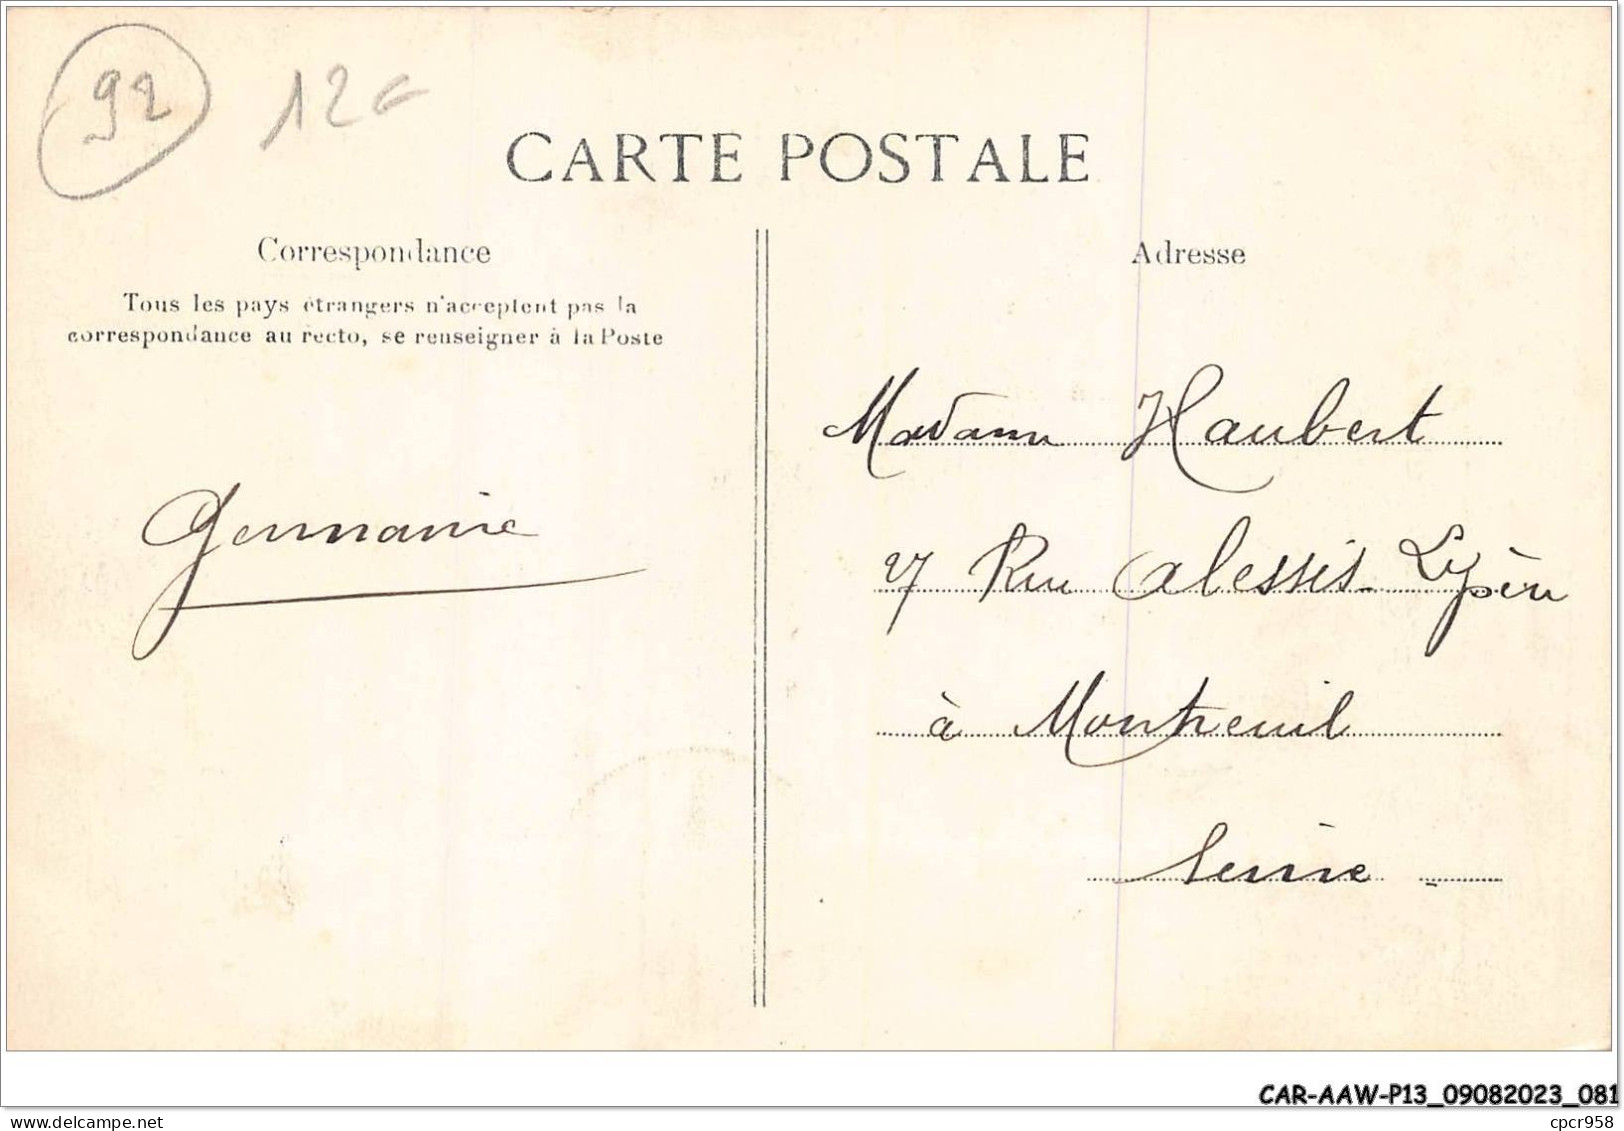 92 12€
CARTE POSTALE
Correspondance
Tous les pays étrangers n'acceptent pas la
correspondance au recto, se renseigner à la Poste
Germaine
Adresse
Madame Haubert
27 Rue Alessis Lepère
à Montreuil
Seine
CAR-AAW-P13_09082023_081
cpcr958